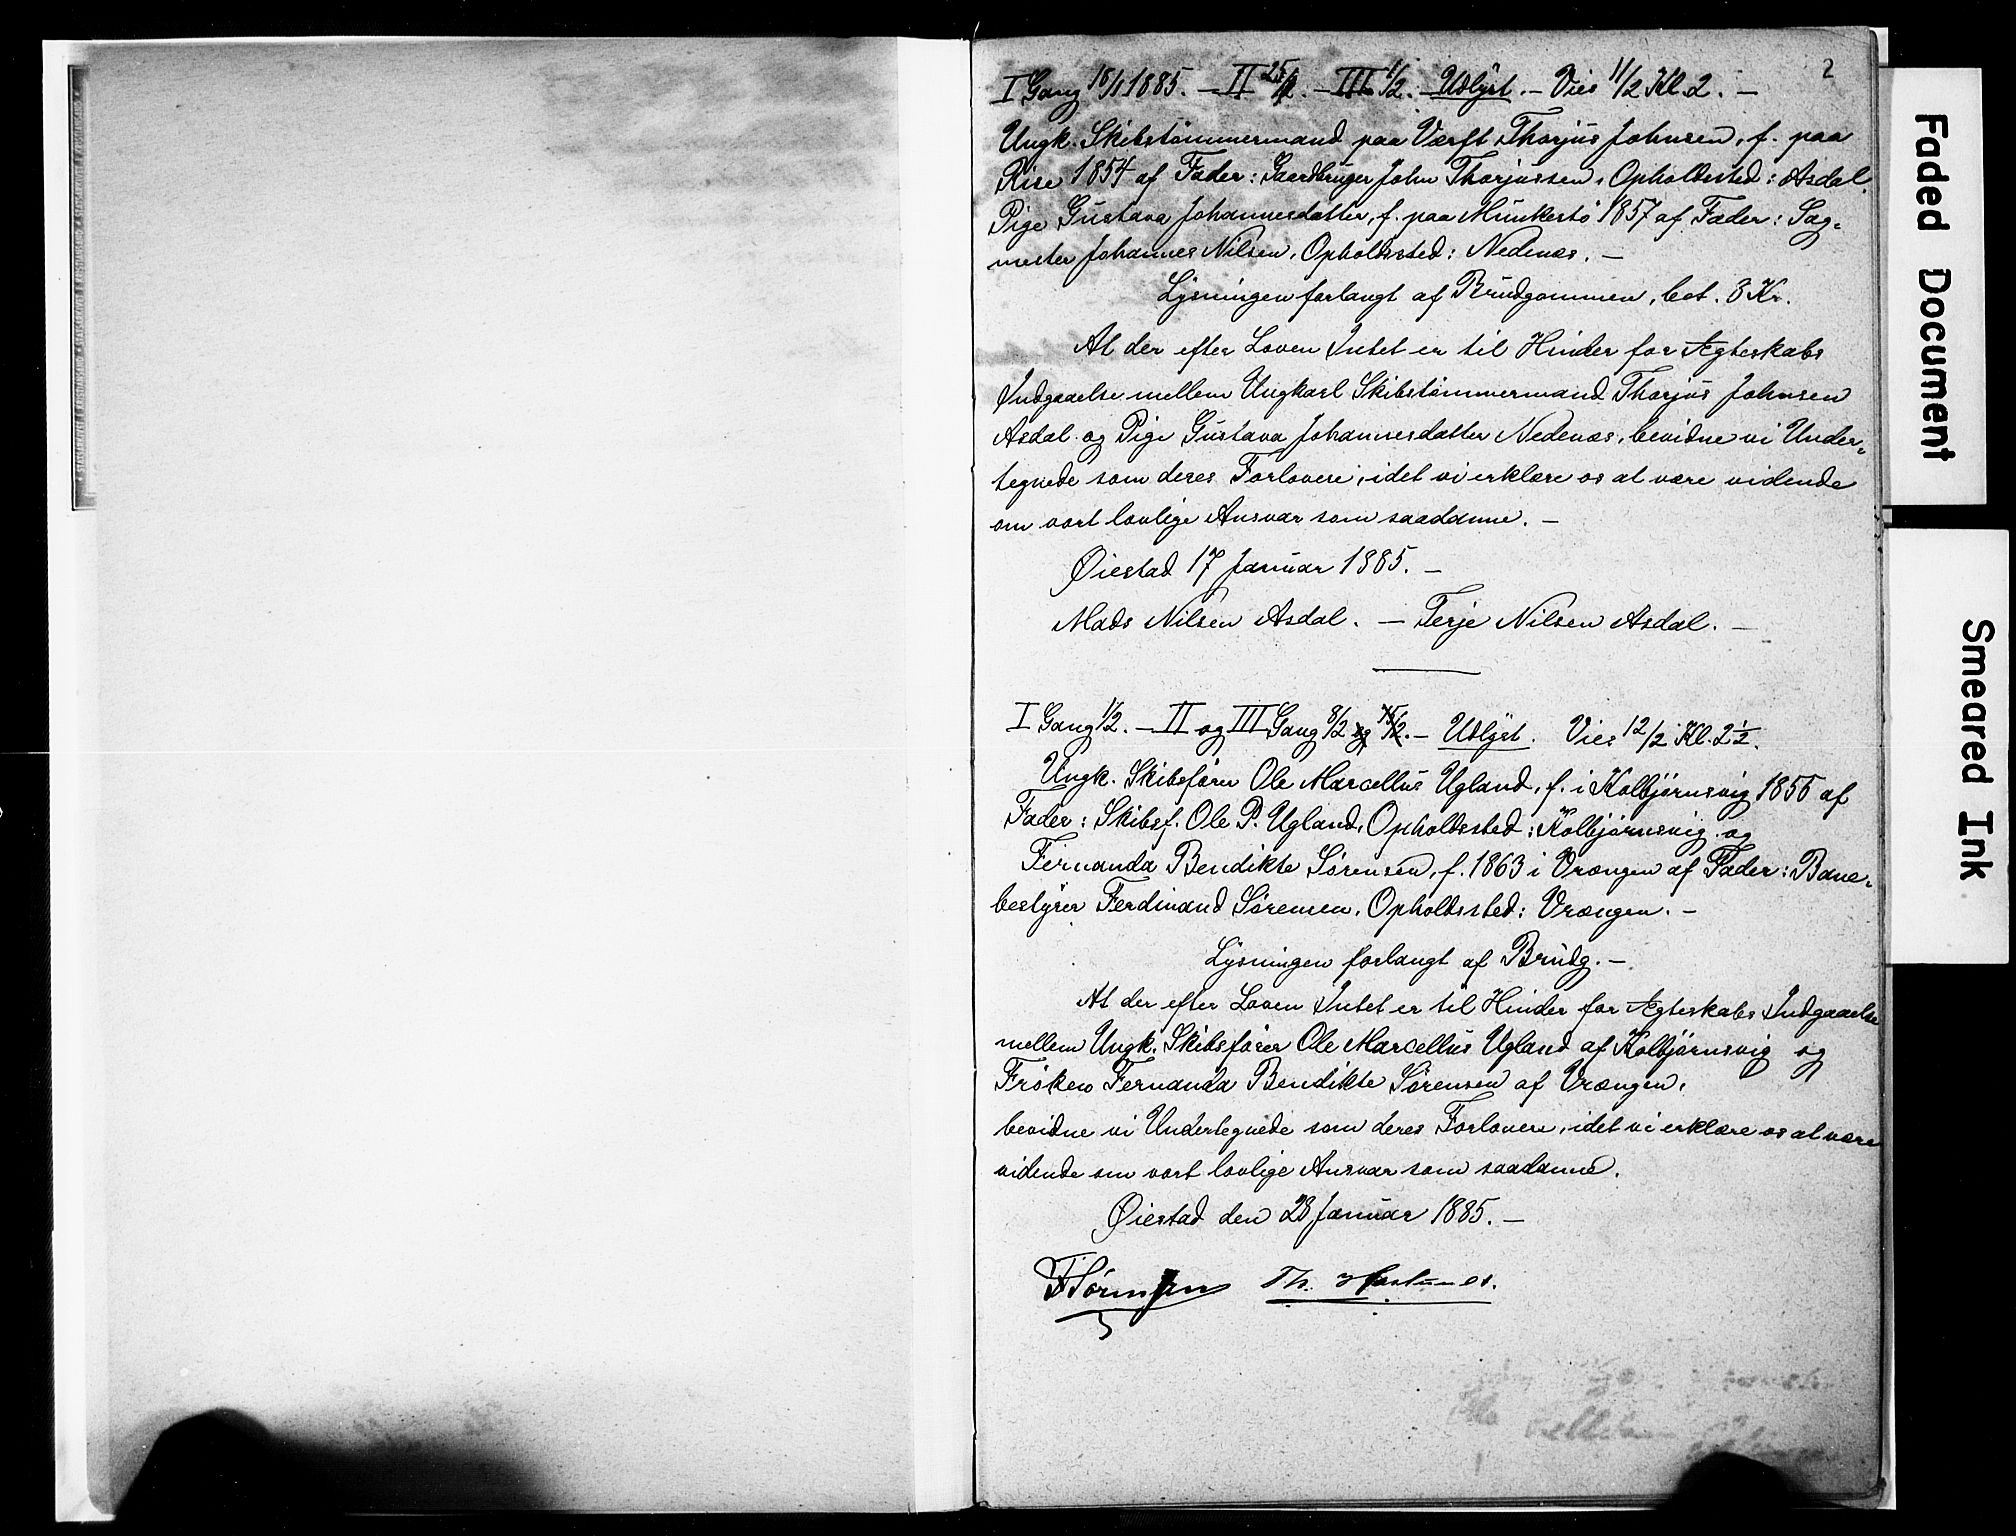 2
I Gang 18/1 1885. – II 25/1. – III 1/2. Udlyst. – Vies 11/2 Kl. 2. –
Ungk. Skibstømmermand paa Værft Thorjus Johnsen, f. paa
Rise 1854 af Fader: Gaardbruger John Thorjussen, Opholdssted: Asdal.
Pige Gustava Johannesdatter, f. paa Munkestø 1857 af Fader: Sag-
mester Johannes Nilsen, Opholdssted: Nedenæs. –
Lysningen forlangt af Brudgommen, bet. 3 Kr.
At der efter Loven Intet er til Hinder for Ægteskabs
Indgaaelse mellem Ungkarl Skibstømmermand Thorjus Johnsen
Asdal og Pige Gustava Johannesdatter Nedenæs, bevidne vi Under-
tegnede som deres Forlovere, idet vi erklære os at være vidende
om vort lovlige Ansvar som saadanne. –
Øiestad 17 Januar 1885. –
Mads Nilsen Asdal. – Terje Nilsen Asdal. –
I Gang 1/2. – II og III Gang 8/2 og 15/2. – Udlyst. Vies 12/2 Kl. 2 1/2.
Ungk. Skibsfører Ole Marcellus Ugland, f. i Kolbjørnsvig 1856 af
Fader: Skibsf. Ole P. Ugland, Opholdssted: Kolbjørnsvig og
Fernanda Bendikte Sørensen, f. 1863 i Vrængen af Fader: Bane-
bestyrer Ferdinand Sørensen, Opholdssted: Vrængen. –
Lysningen forlangt af Brudg. –
At der efter Loven Intet er til Hinder for Ægteskabs Indgaaelse
mellem Ungk. Skibsfører Ole Marcellus Ugland af Kolbjørnsvig og
Frøken Fernanda Bendikte Sørensen af Vrængen,
bevidne vi Undertegnede som deres Forlovere, idet vi erklære os at være
vidende om vort lovlige Ansvar som saadanne.
Øiestad den 28 Januar 1885. –
F Sørensen Th.
Faded Document
Smeared Ink